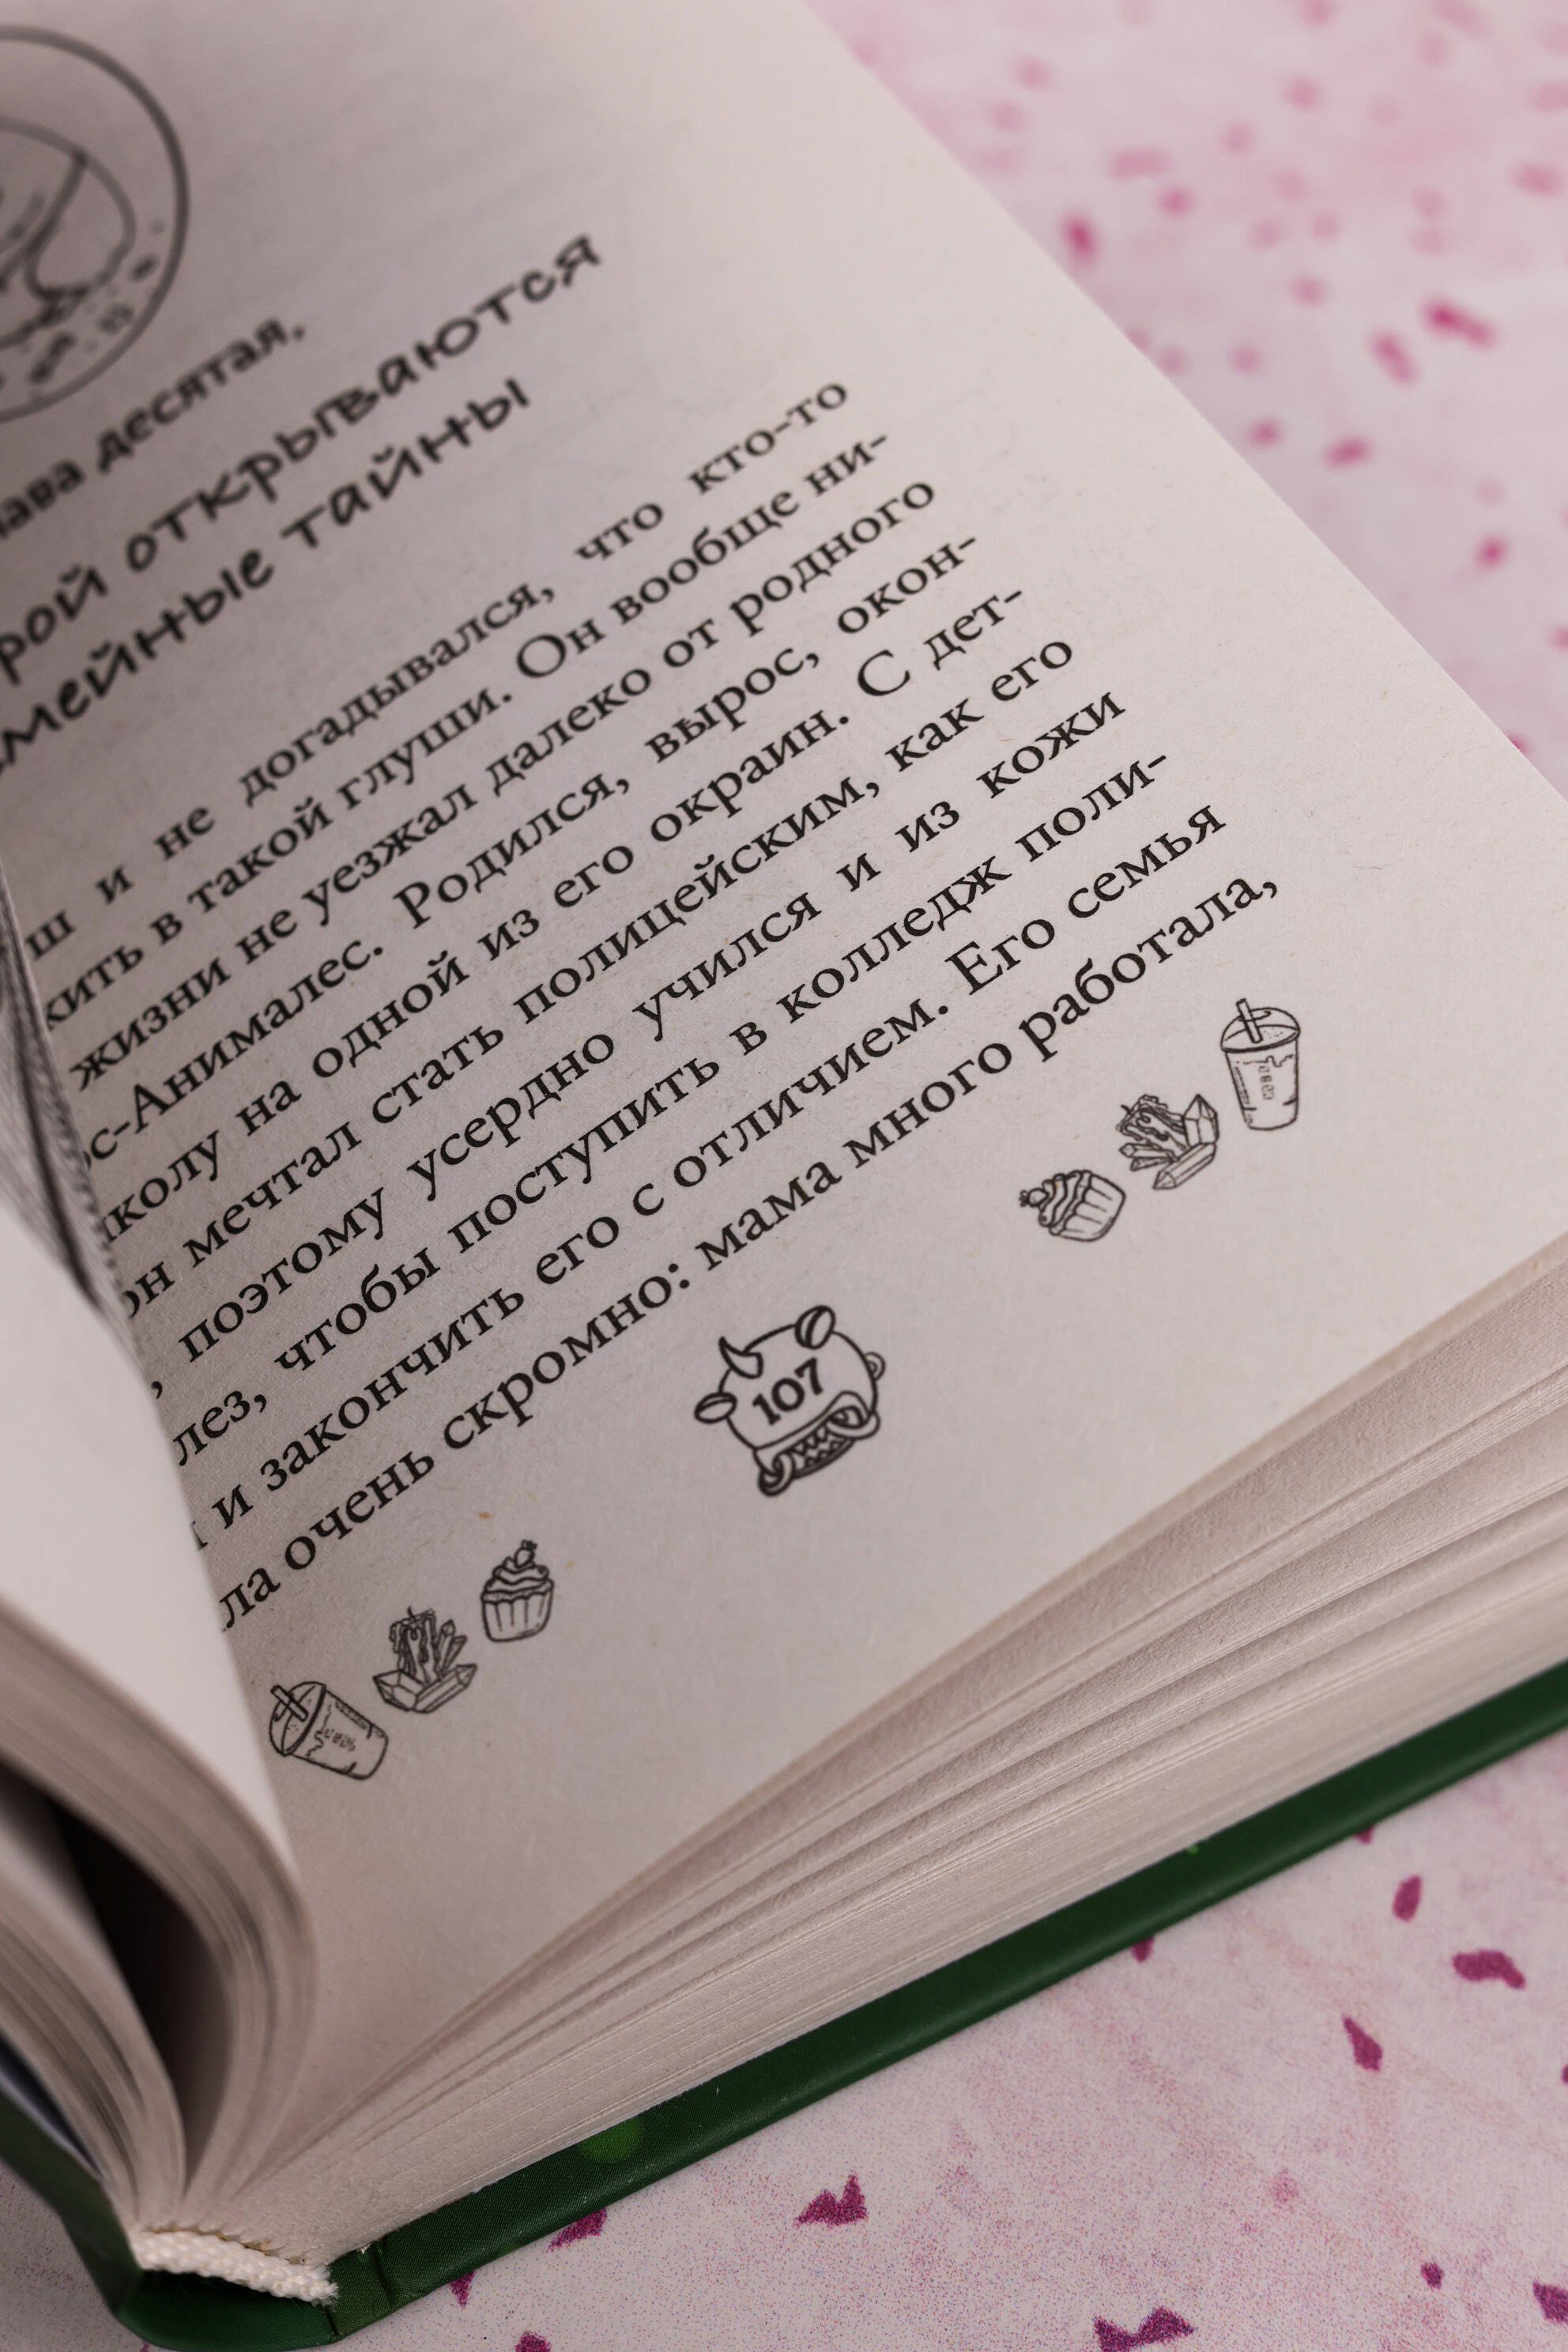 десятая,
открываются
тайны
и не догадывался, что кто-то
в такой глуши. Он вообще ни-
жизни не уезжал далеко от родного
Анималес. Родился, вырос, окон-
на одной из его окраин. С дет-
мечтал стать полицейским, как его
, поэтому усердно учился и из кожи
лез, чтобы поступить в колледж поли-
и закончить его с отличием. Его семья
очень скромно: мама много работала,
107